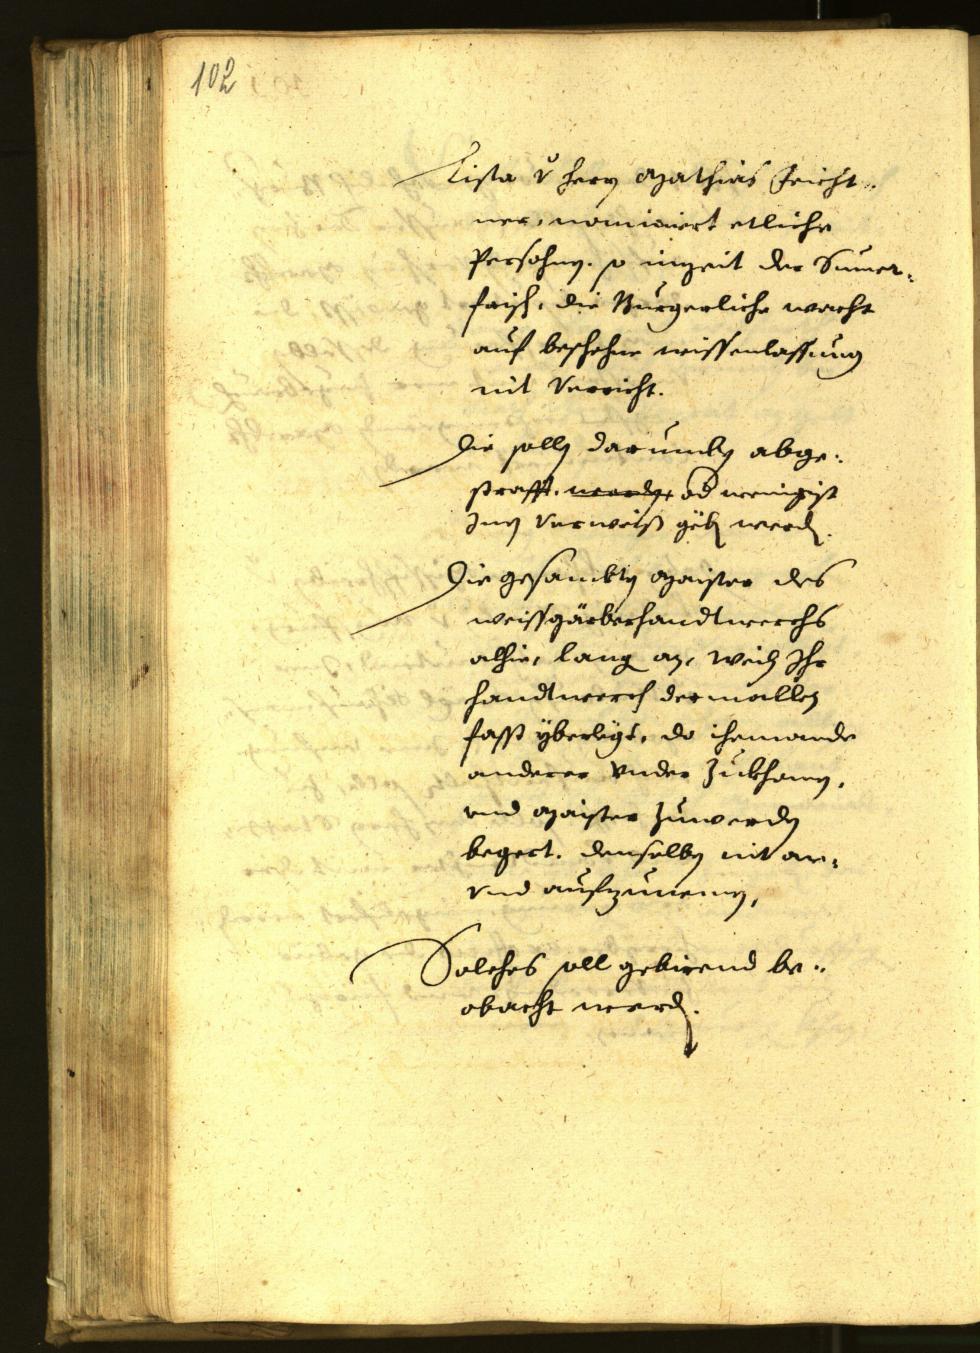 102
Lista v herrn Mathias Jeicht„
ner, nominiert etliche
Persohnen. so in Zeit der Summer„
frisch, die Burgerliche wacht
auf beschehne wissenlassung
nit Verricht.
Die sollen darumben abge„
strafft. werden, od wenigist
Inen Verweiß geben werden.
Die gesambten Maister des
weissgärberhandtwerchs
alhie, lang an, weiln Ihr
handtwerch dermallen
fasst yberlegt, do ihemande
anderer Vnder Zukhomen,
vnd Maister Zuwerden
begert. denselben nit an„
vnd aufzunemen,
Solches soll gebirend be„
obacht werden.